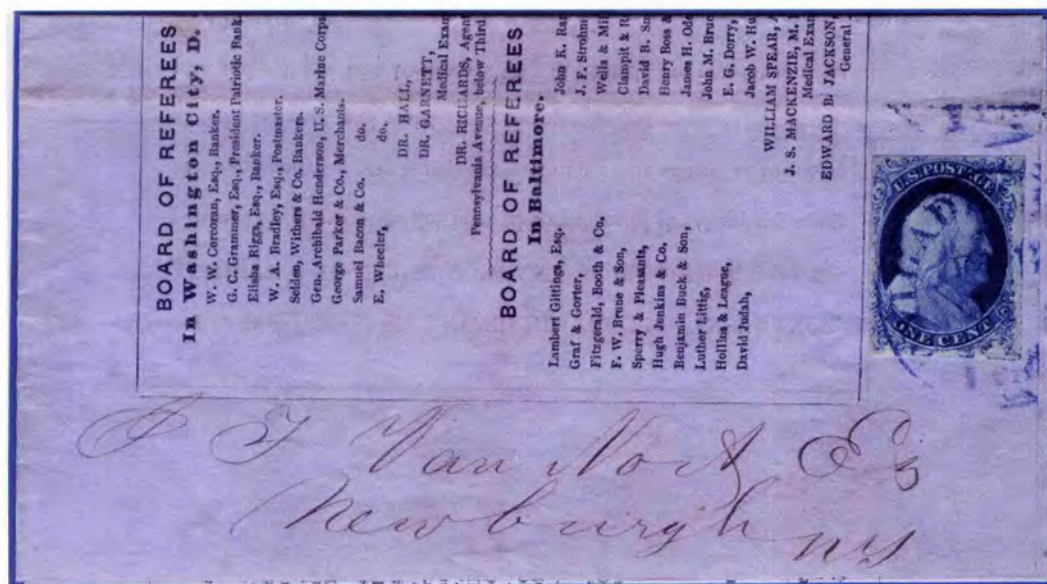 BOARD OF REFEREES
In Washington City, D.
W. W. Corcoran, Esq., Banker.
G. C. Grammer, Esq., President Patriotic Bank.
Elisha Riggs, Esq., Banker.
W. A. Bradley, Esq., Postmaster.
Selden, Withers & Co. Bankers.
Gen. Archibald Henderson, U. S. Marine Corps.
George Parker & Co., Merchants.
Samuel Bacon & Co. do.
E. Wheeler, do.
DR. HALL,
DR. GARNETT,
Medical Exam
DR. RICHARDS, Agent
Pennsylvania Avenue, below Third
BOARD OF REFEREES
In Baltimore.
Lambert Gittings, Esq.
Graf & Gorter,
Fitzgerald, Booth & Co.
F. W. Brune & Son,
Sperry & Pleasants,
Hugh Jenkins & Co.
Benjamin Buck & Son,
Luther Littig,
Hollins & League,
David Judah,
John K. Ran
J. F. Strohm
Wells & Mil
Clampit & R
David B. Sm
Henry Boss &
James H. Ode
John M. Bruc
E. G. Dorry,
Jacob W. Hu
WILLIAM SPEAR,
J. S. MACKENZIE, M.
Medical Exam
EDWARD B. JACKSON,
General
U.S. POSTAGE
PAID
ONE CENT
Van Nort Esq
Newburgh
NY